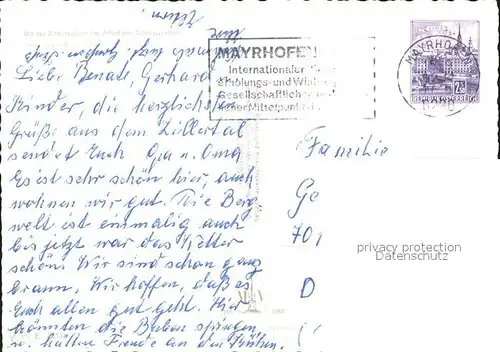 MAYRHOFEN
Internationaler
erholungs-und Win
Gesellschaftlicher
MAYRHOFEN
REPUBLIK ÖSTERREICH
Liebe Renate, Gerhard u.
Kinder, die herzlichsten
Grüße aus dem Zillertal
sendet Euch Opa u. Oma
Es ist sehr schön hier, auch
wohnen wir gut. Die Berg
welt ist einmalig auch
bis jetzt war das Wetter
schön. Wir sind schon ganz
braun. Wir hoffen, daß es
Euch allen gut geht. Hier
könnten die Buben springen
u. hätten Freude an den Kühen.
Familie
Ge
701
D
privacy protection
Datenschutz